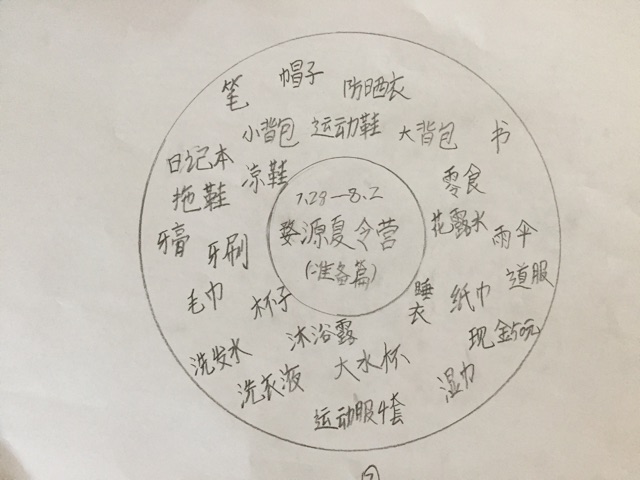 笔
帽子
防晒衣
小背包
运动鞋
大背包
书
日记本
凉鞋
零食
拖鞋
7.29—8.2
花露水
雨伞
婺源夏令营
牙膏
牙刷
(准备篇)
道服
毛巾
杯子
睡衣
纸巾
沐浴露
现金50元
洗发水
大水杯
洗衣液
运动服4套